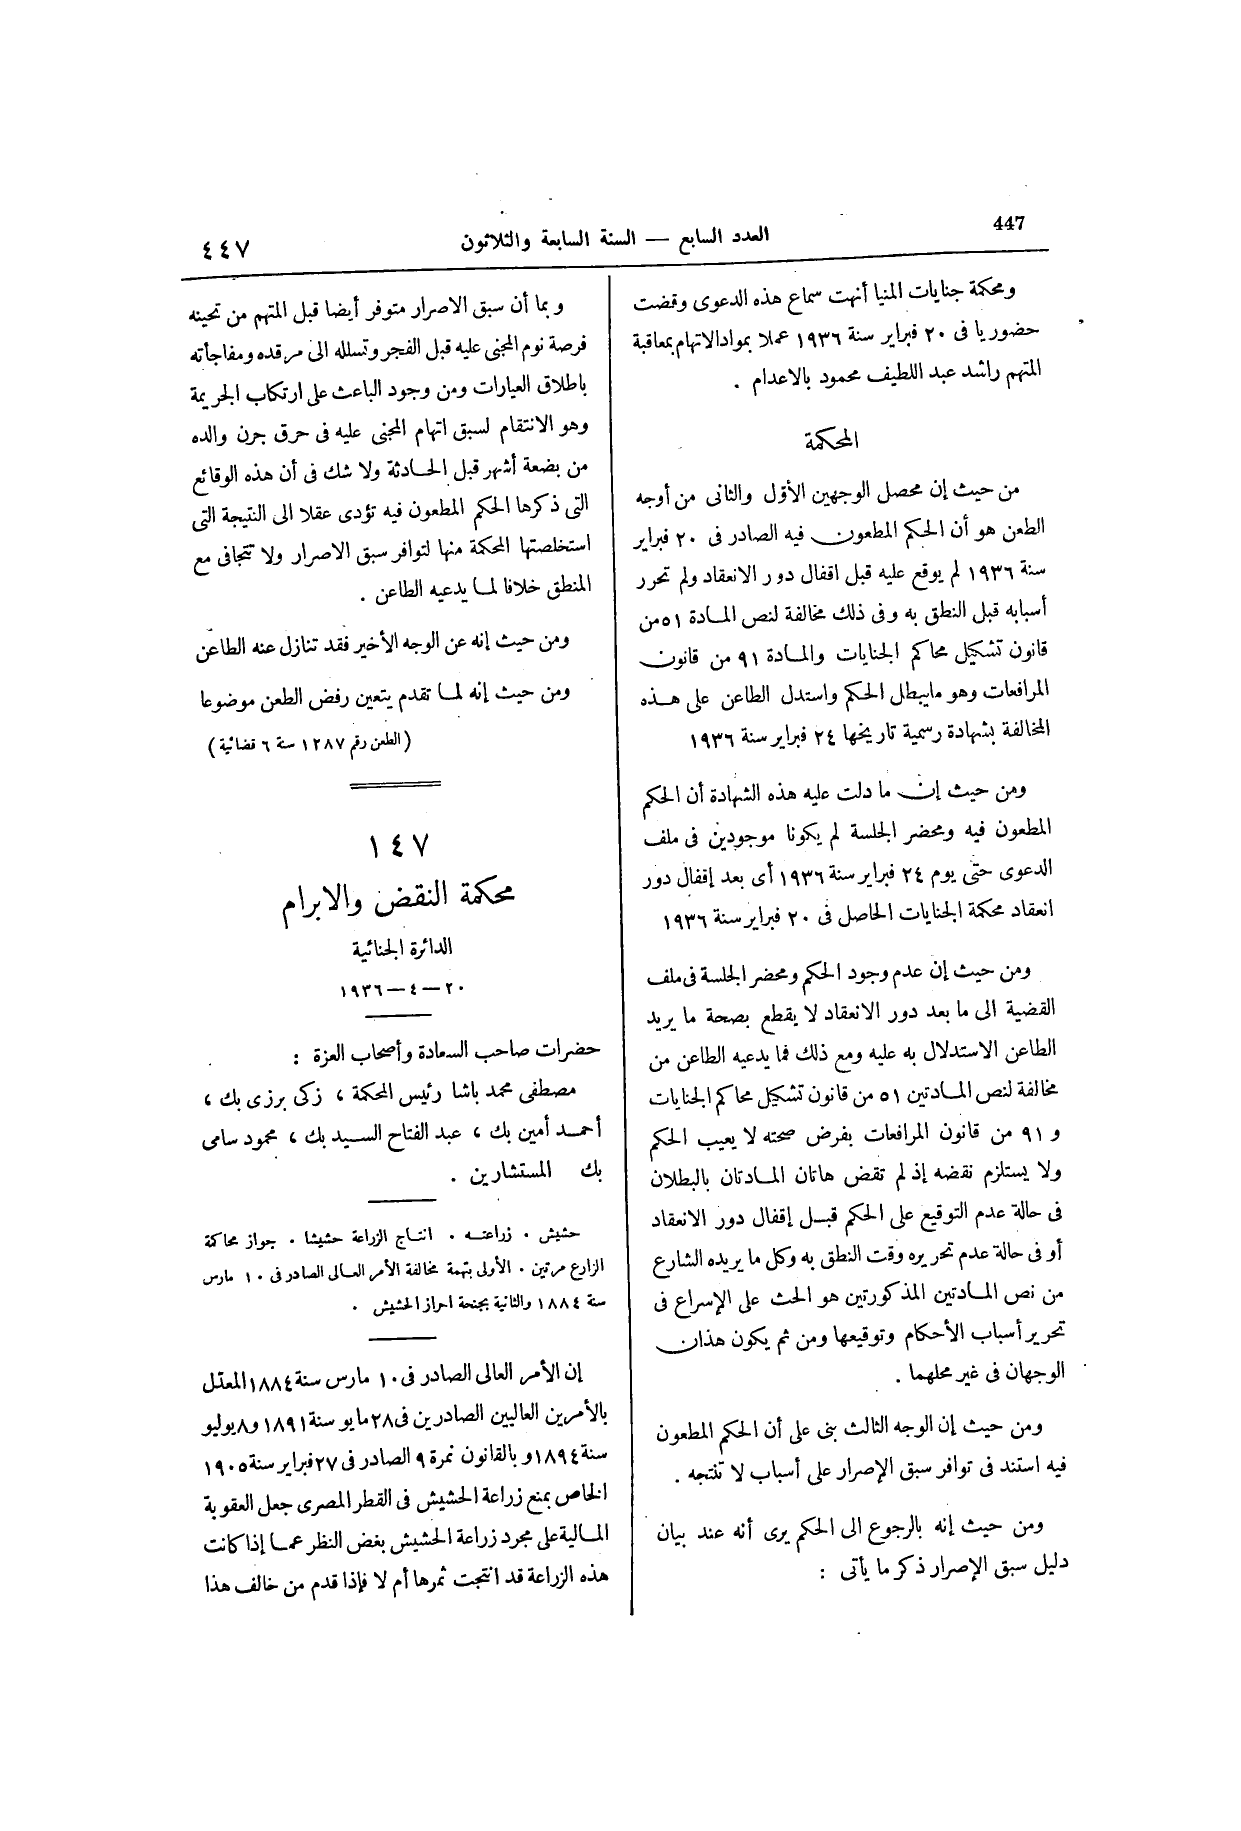 447
العدد السابع — السنة السابعة والثلاثون
٤٤٧
ومحكمة جنايات المنيا أنهت سماع هذه الدعوى وقضت
حضوريا فى ٢٠ فبراير سنة ١٩٣٦ عملا بمواد الاتهام بمعاقبة
المتهم راشد عبد اللطيف محمود بالاعدام .
المحكمة
من حيث إن محصل الوجهين الأوّل والثانى من أوجه
الطعن هو أن الحكم المطعون فيه الصادر فى ٢٠ فبراير
سنة ١٩٣٦ لم يوقع عليه قبل اقفال دور الانعقاد ولم تحرر
أسبابه قبل النطق به وفى ذلك مخالفة لنص المادة ٥١ من
قانون تشكيل محاكم الجنايات والمادة ٩١ من قانون
المرافعات وهو مايبطل الحكم واستدل الطاعن على هذه
المخالفة بشهادة رسمية تاريخها ٢٤ فبراير سنة ١٩٣٦
ومن حيث إن ما دلت عليه هذه الشهادة أن الحكم
المطعون فيه ومحضر الجلسة لم يكونا موجودين فى ملف
الدعوى حتى يوم ٢٤ فبراير سنة ١٩٣٦ أى بعد إقفال دور
انعقاد محكمة الجنايات الحاصل فى ٢٠ فبراير سنة ١٩٣٦
ومن حيث إن عدم وجود الحكم ومحضر الجلسة فى ملف
القضية الى ما بعد دور الانعقاد لا يقطع بصحة ما يريد
الطاعن الاستدلال به عليه ومع ذلك فما يدعيه الطاعن من
مخالفة لنص المادتين ٥١ من قانون تشكيل محاكم الجنايات
و ٩١ من قانون المرافعات بفرض صحته لا يعيب الحكم
ولا يستلزم نقضه إذ لم تقض هاتان المادتان بالبطلان
فى حالة عدم التوقيع على الحكم قبل إقفال دور الانعقاد
أو فى حالة عدم تحريره وقت النطق به وكل ما يريده الشارع
من نص المادتين المذكورتين هو الحث على الإسراع فى
تحرير أسباب الأحكام وتوقيعها ومن ثم يكون هذان
الوجهان فى غير محلهما .
ومن حيث إن الوجه الثالث بنى على أن الحكم المطعون
فيه استند فى توافر سبق الإصرار على أسباب لا تنتجه .
ومن حيث إنه بالرجوع الى الحكم يرى أنه عند بيان
دليل سبق الإصرار ذكر ما يأتى :
و بما أن سبق الاصرار متوفر أيضا قبل المتهم من تحينه
فرصة نوم المجنى عليه قبل الفجر وتسلله الى مرقده ومفاجأته
باطلاق العيارات ومن وجود الباعث على ارتكاب الجريمة
وهو الانتقام لسبق اتهام المجنى عليه فى حرق جرن والده
من بضعة أشهر قبل الحادثة ولا شك فى أن هذه الوقائع
التى ذكرها الحكم المطعون فيه تؤدى عقلا الى النتيجة التى
استخلصتها المحكمة منها لتوافر سبق الاصرار ولا تتجافى مع
المنطق خلافا لما يدعيه الطاعن .
ومن حيث إنه عن الوجه الأخير فقد تنازل عنه الطاعن
ومن حيث إنه لما تقدم يتعين رفض الطعن موضوعا
( الطعن رقم ١٢٨٧ سنة ٦ قضائية )
١٤٧
محكمة النقض والابرام
الدائرة الجنائية
٢٠ – ٤ – ١٩٣٦
حضرات صاحب السعادة وأصحاب العزة :
مصطفى محمد باشا رئيس المحكمة ، زكى برزى بك ،
أحمد أمين بك ، عبد الفتاح السيد بك ، محمود سامى
بك المستشارين .
حشيش . زراعته . انتاج الزراعة حشيشا . جواز محاكمة
الزارع مرتين . الأولى بتهمة مخالفة الأمر العالى الصادر فى ١٠ مارس
سنة ١٨٨٤ والثانية بجنحة احراز الحشيش .
إن الأمر العالى الصادر فى ١٠ مارس سنة ١٨٨٤ المعدّل
بالأمرين العاليين الصادرين فى ٢٨ مايو سنة ١٨٩١ و ٨ يوليو
سنة ١٨٩٤ و بالقانون نمرة ٩ الصادر فى ٢٧ فبراير سنة ١٩٠٥
الخاص بمنع زراعة الحشيش فى القطر المصرى جعل العقوبة
المالية على مجرد زراعة الحشيش بغض النظر عما إذا كانت
هذه الزراعة قد انتجت ثمرها أم لا فإذا قدم من خالف هذا